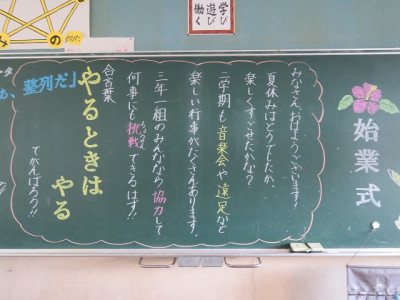 学び
遊び
働く
みの
整列だ」
始業式
みなさん、おはようございます！
夏休みはどうでしたか、
楽しくすごせたかな？
二学期も音楽会や遠足など
楽しい行事がたくさんあります。
三年一組のみんななら協力して
何事にも挑戦できるはず！
ちょうせん
合言葉
やるときは
やる
でがんばろう！！